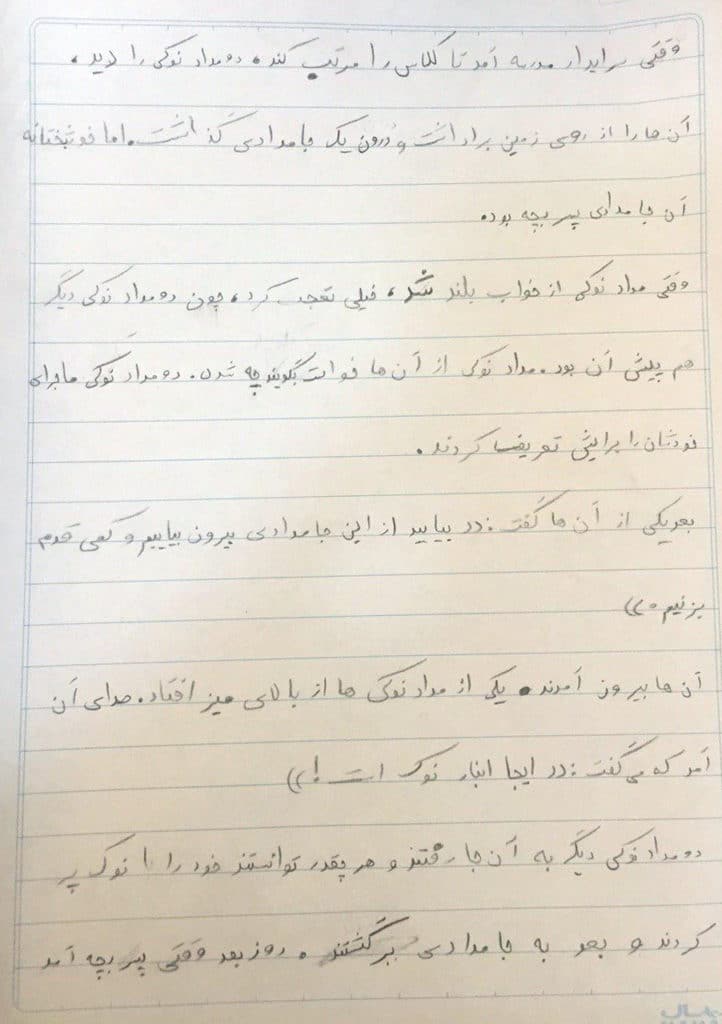 وقتی سرایدار مدرسه آمد تا کلاس را مرتب کند، دو مداد نوکی را دید،
آن ها را از روی زمین برداشت و درون یک جامدادی گذاشت. اما خوشبختانه
آن جامدادی پسر بچه بود.
وقتی مداد نوکی از خواب بلند شد، خیلی تعجب کرد، چون دو مداد نوکی دیگر
هم پیش آن بود. مداد نوکی از آن ها خواست بگویند چه شدن. دو مداد نوکی ماجرای
خودشان را برایش تعریف کردند.
بعد یکی از آن ها گفت: «بیایید از این جامدادی بیرون بیاییم و کمی قدم
بزنیم.»
آن ها بیرون آمدند. یکی از مداد نوکی ها از بالای میز افتاد. صدای آن
آمد که می گفت: «اینجا انبار نوک است!»
دو مداد نوکی دیگر به آن جا رفتند و هر چقدر توانستند خود را با نوک پر
کردند و بعد به جامدادی برگشتند. روز بعد وقتی پسر بچه آمد